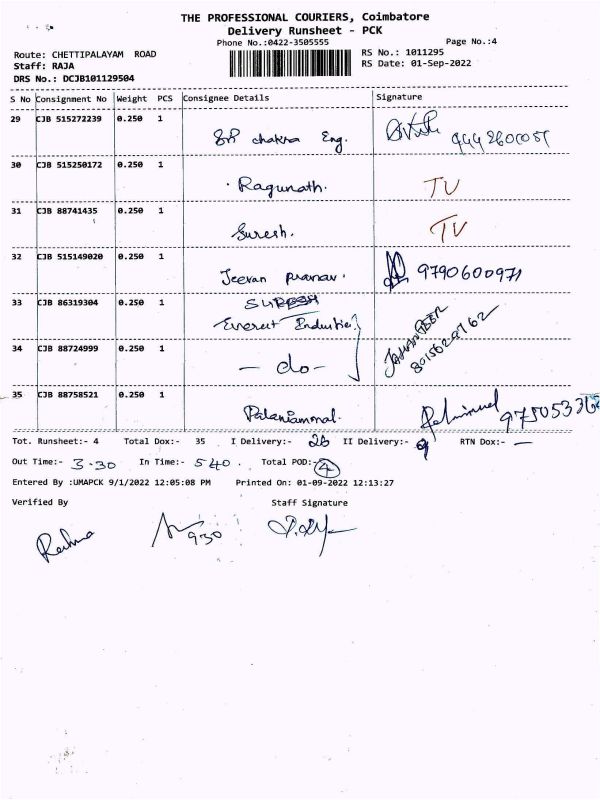 THE PROFESSIONAL COURIERS, Coimbatore
Delivery Runsheet - PCK
Phone No.:0422-3505555 Page No.:4
Route: CHETTIPALAYAM ROAD RS No.: 1011295
Staff: RAJA RS Date: 01-Sep-2022
DRS No.: DCJB101129504
S No Consignment No Weight PCS Consignee Details Signature
29 CJB 515272239 0.250 1
Sri chakra Eng.
30 CJB 515250172 0.250 1
Ragunath. TV
31 CJB 88741435 0.250 1
Suresh. TV
32 CJB 515149020 0.250 1
Jeevan pranav. 9790600971
33 CJB 86319304 0.250 1
Everest Industries
34 CJB 88724999 0.250 1
- do - 8015628762
35 CJB 88758521 0.250 1
Palaniammal.
Tot. Runsheet:- 4 Total Dox:- 35 I Delivery:- II Delivery:- RTN Dox:- —
Out Time:- 3.30 In Time:- 540. Total POD:- 4
Entered By :UMAPCK 9/1/2022 12:05:08 PM Printed On: 01-09-2022 12:13:27
Verified By Staff Signature
9.30